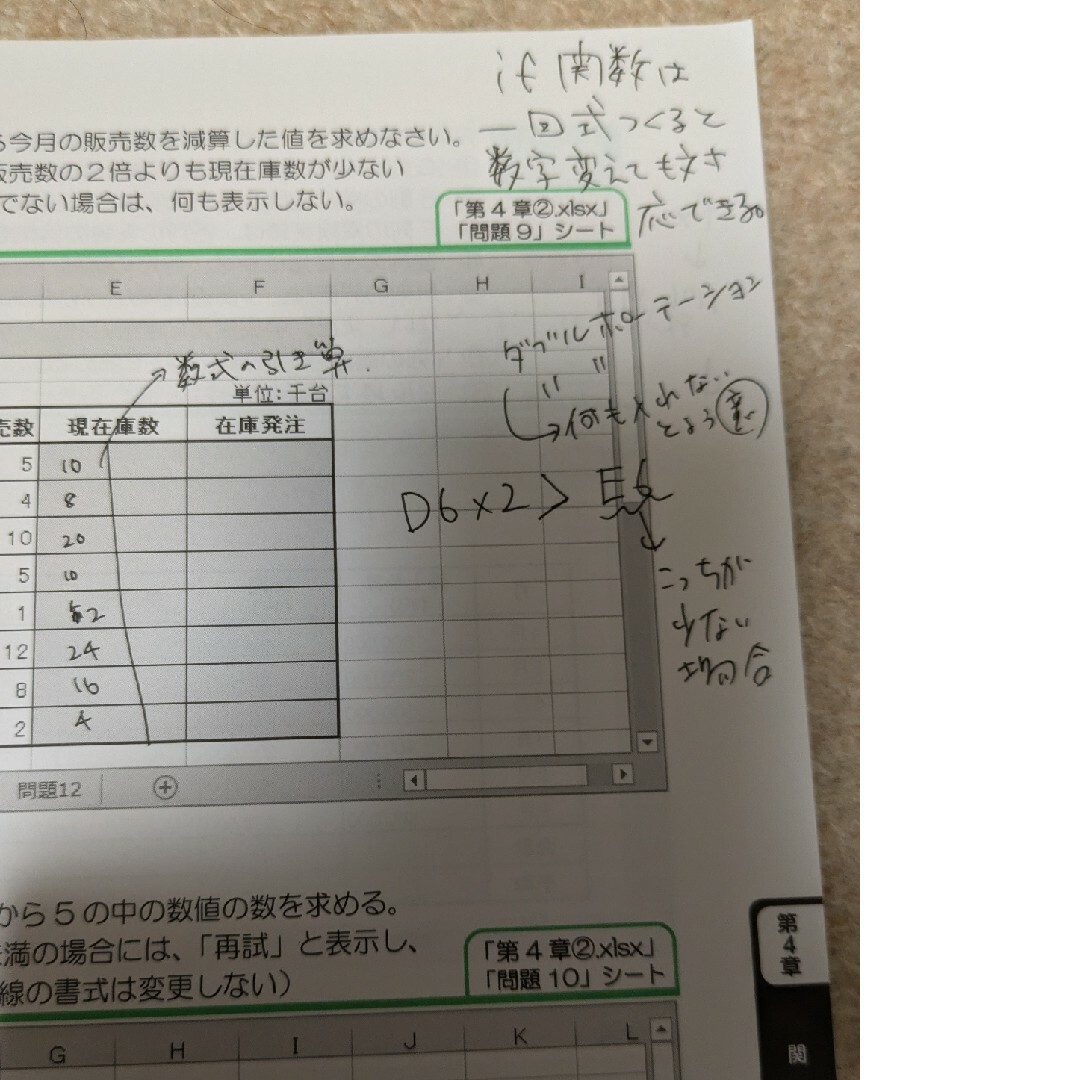 if 関数は
一回式つくると
数字変えても対
応できる。
ら今月の販売数を減算した値を求めなさい。
販売数の2倍よりも現在庫数が少ない
でない場合は、何も表示しない。
「第4章②.xlsx」
「問題9」シート
E F G H I
ダブルポーテーション
" "
→何も入れない
とまう
数式の引き算.
単位:千台
売数 現在庫数 在庫発注
5 10
4 8
10 20
5 10
1 2
12 24
8 16
2 4
D6×2> E6
こっちが
少ない
場合
問題12
から5の中の数値の数を求める。
満の場合には、「再試」と表示し、
線の書式は変更しない)
「第4章②.xlsx」
「問題10」シート
G H I J K L
第4章
関